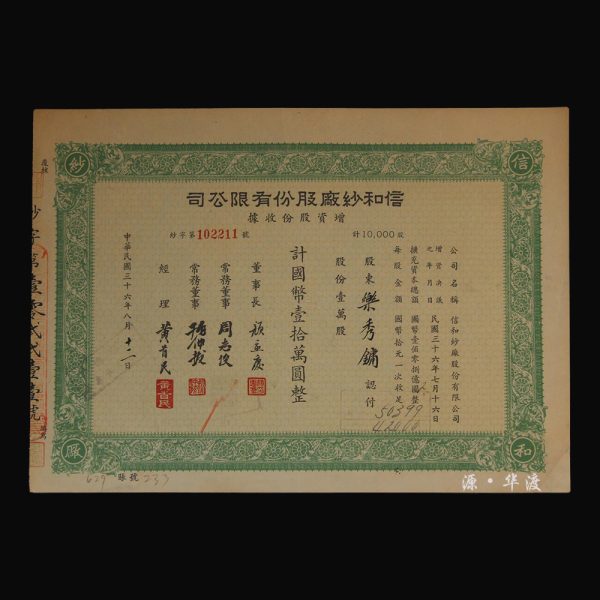 信和紗廠股份有限公司
增資股份收據
紗字第 102211 號
計10,000股
公司名稱 信和紗廠股份有限公司
增資決議之年月日 民國三十六年七月十六日
擴充資本總額 國幣壹佰零捌億圓整
每股金額 國幣拾元一次收足
股東 樂秀鏞 認付
股份壹萬股
計國幣壹拾萬圓整
董事長
常務董事 周志俊
常務董事
經理 黃首民
中華民國三十六年八月十二日
紗字第壹零貳貳壹壹號
50399
賬號
629 233
信
和
紗
厰
源·华渡